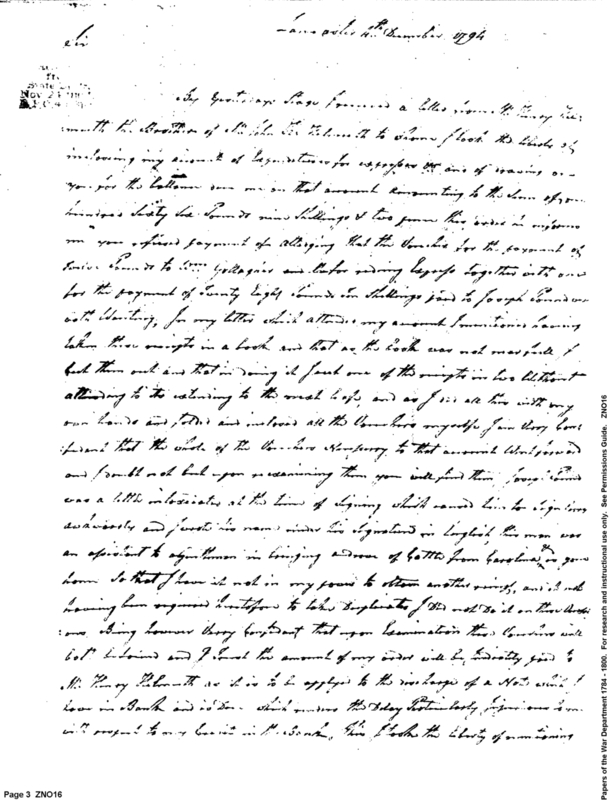 Lancaster 4th December 1794
Sir
Nov 2
By yesterdays Stage I received a letter from Mr Henry
the Brother of Mr John to whom I took the liberty of
inclosing my account of Expenditures for expresses &c and of drawing on
you for the ballance due me on that account amounting to the Sum of
hundred Sixty Six Pounds nine Shillings & two pence this order he informs
me you refused payment of alledging that the Voucher for the payment of
Pounds to Wm Gallagher and for riding Express together with one
for the payment of Twenty Eight Pounds Ten Shillings paid to Joseph
with Wanting, In my letter which attended my account I mentioned having
taken these receipts in a book and that as the book was not near full I
cut them out and that in doing it I cut one of the receipts in two Without
attending to its extending to the next leafe, and as I did all this with my
own hands and folded and inclosed all the Vouchers myself I am Very
that the whole of the Vouchers to that account Went forward
and I doubt not but upon re examining them you will find them Joseph
was a little intoxicated at the time of Signing which caused him to Sign
and I wrote his name under his Signature in English, this man was
an assistant to a gentleman in bringing a drove of Cattle from Carolina & is gone
home So that I have it not in my power to obtain another receipt, and it not
having been required heretofore to take Duplicates I Did not Do it on this
Being however Very Confident that upon Examination these Vouchers will
be found and I trust the amount of my order will be paid to
Mr Henry as it is to be applyd to the discharge of a Note which I
have in Bank and is Due which renders the Delay Particularly injurious to me
with respect to my Credit in the Bank, I took the liberty of mentioning
Page 3 ZNO16
Papers of the War Department 1784 - 1800. For research and instructional use only. See Permissions Guide. ZNO16